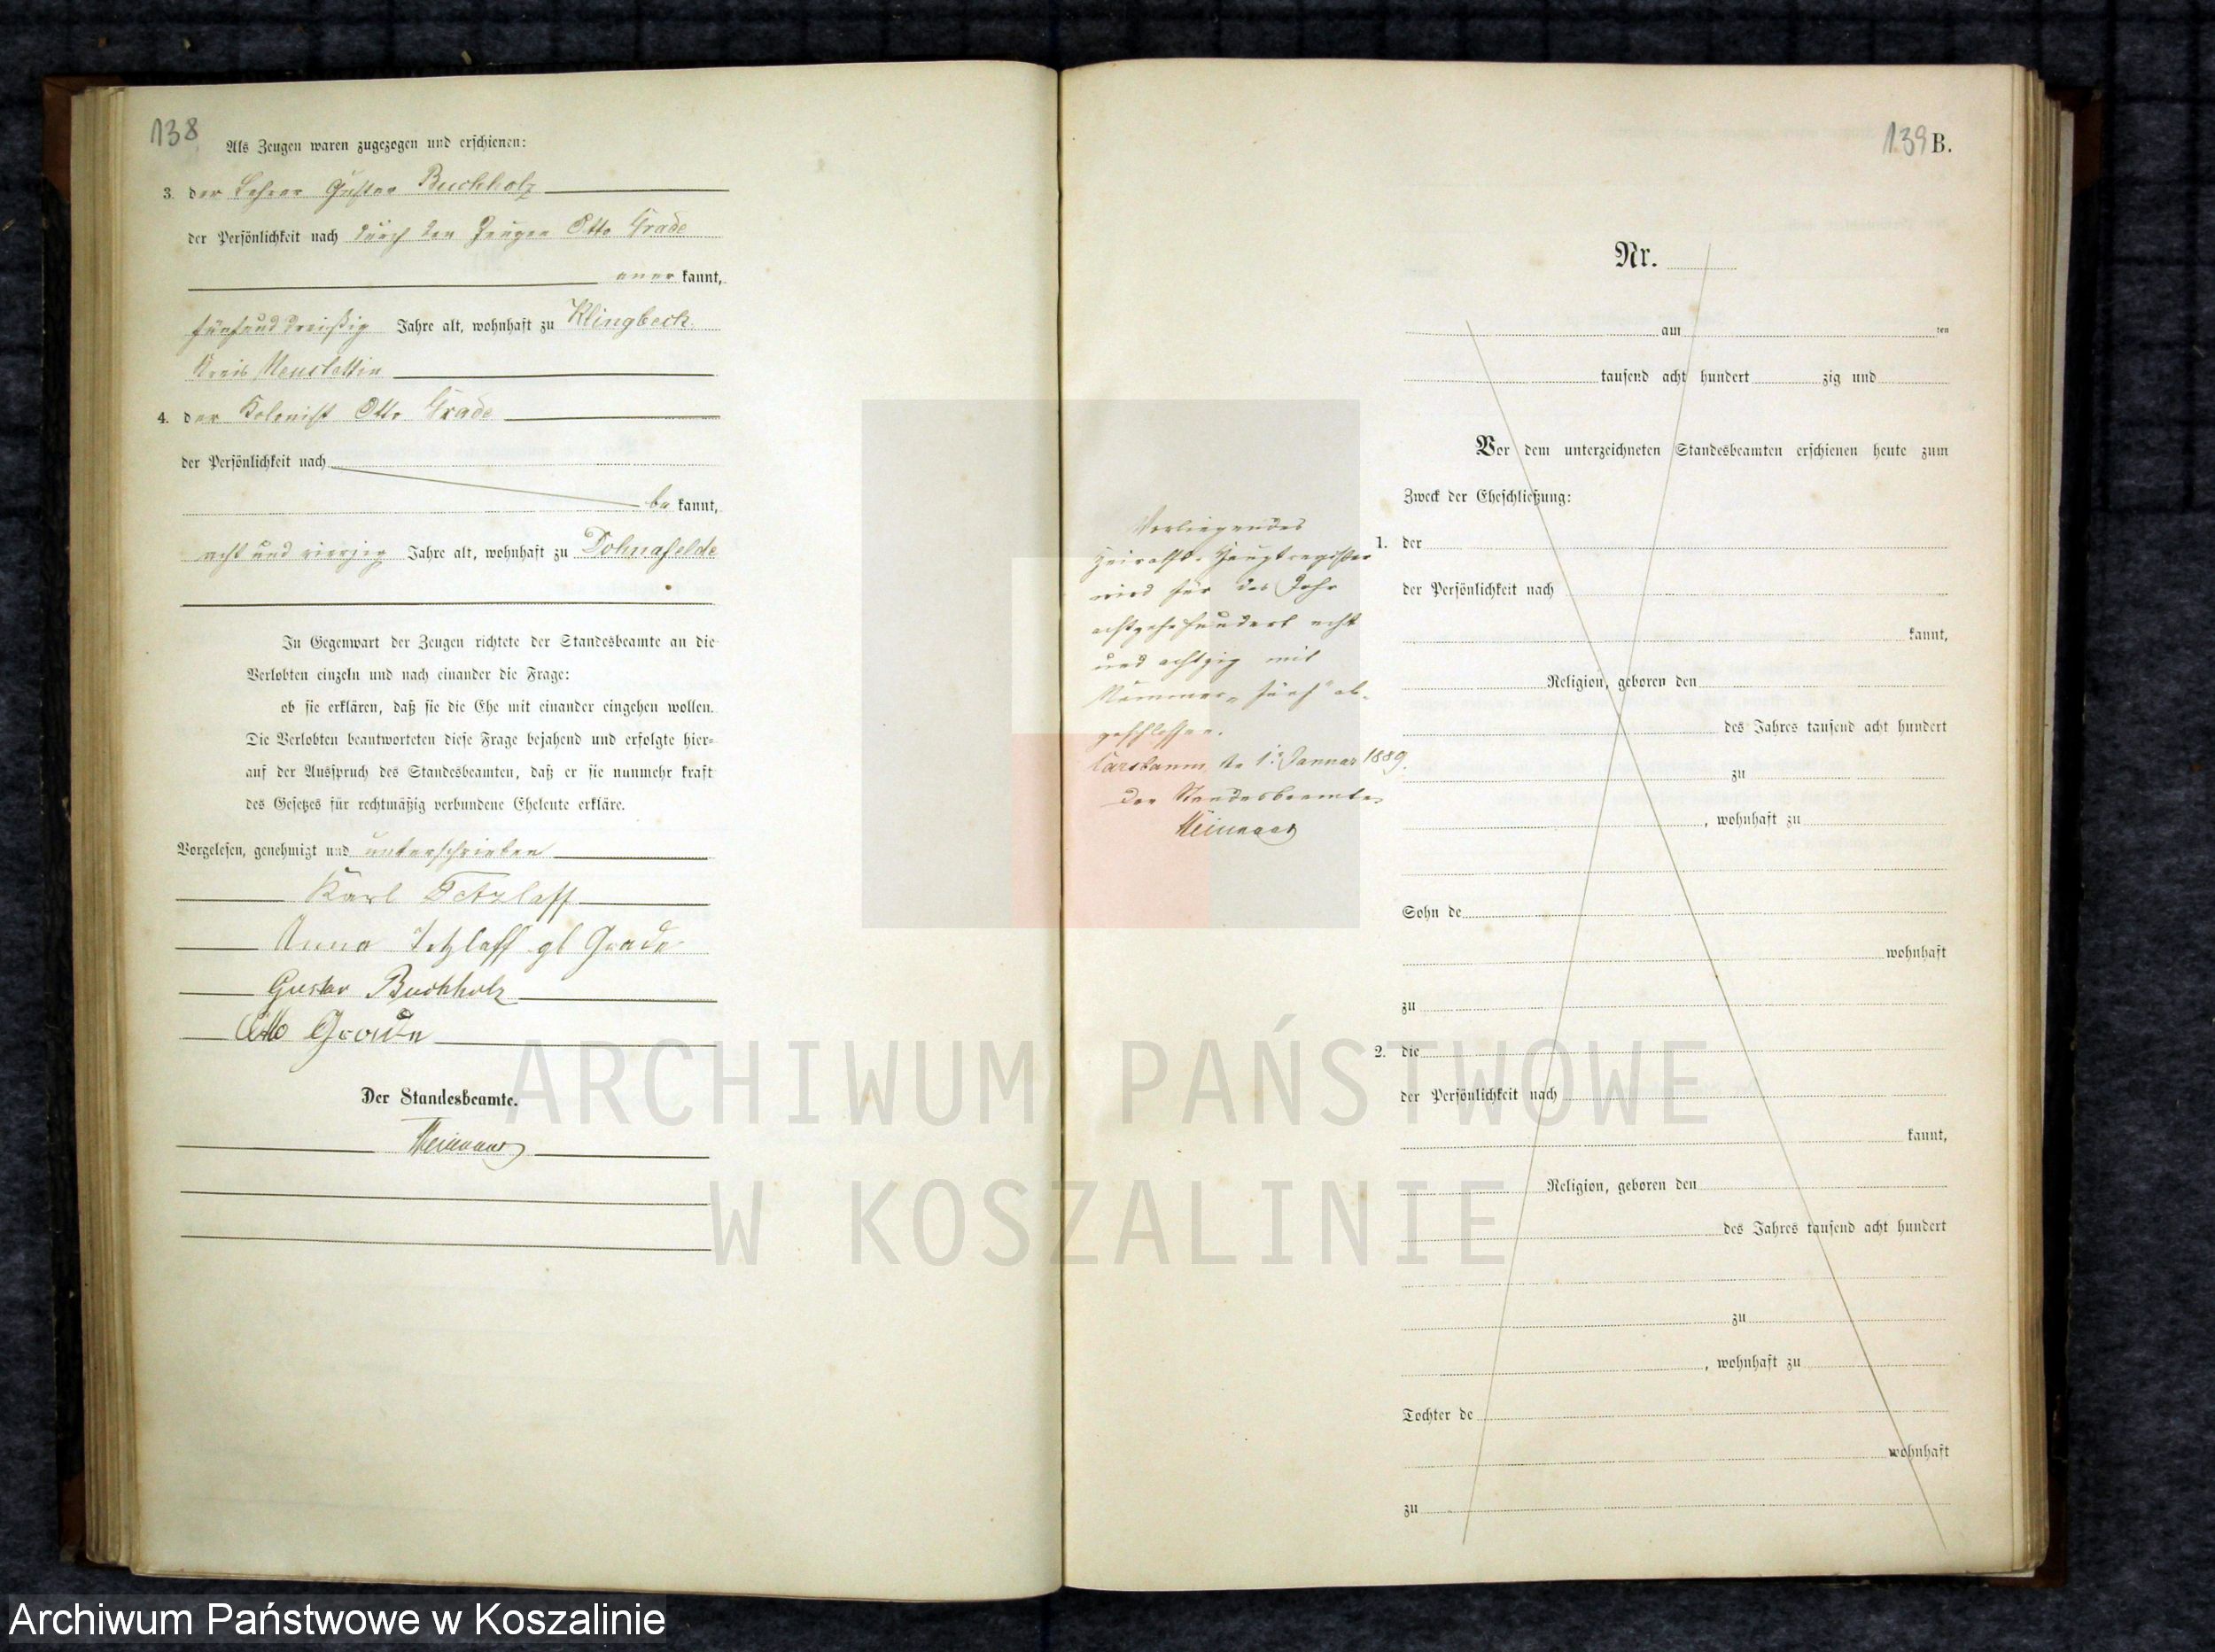 138
Als Zeugen waren zugezogen und erschienen:
3. der Lehrer Gustav Buchholz
der Persönlichkeit nach durch den Zeugen Otto Grade
aner kannt,
fünfunddreißig Jahre alt, wohnhaft zu Klingbeck
Kreis Neustettin
4. der Kolonist Otto Grade
der Persönlichkeit nach
be kannt,
acht und vierzig Jahre alt, wohnhaft zu Dohnafelde
In Gegenwart der Zeugen richtete der Standesbeamte an die
Verlobten einzeln und nach einander die Frage:
ob sie erklären, daß sie die Ehe mit einander eingehen wollen.
Die Verlobten beantworteten diese Frage bejahend und erfolgte hier-
auf der Ausspruch des Standesbeamten, daß er sie nunmehr kraft
des Gesetzes für rechtmäßig verbundene Eheleute erkläre.
Vorgelesen, genehmigt und unterschrieben
Karl Tetzlaff
Anna Tetzlaff gb Grade
Gustav Buchholz
Otto Grade
Der Standesbeamte.
139 B.
Nr.
am ten
tausend acht hundert zig und
Vor dem unterzeichneten Standesbeamten erschienen heute zum
Zweck der Eheschließung:
1. der
der Persönlichkeit nach
kannt,
Religion, geboren den
des Jahres tausend acht hundert
zu
, wohnhaft zu
Sohn de
wohnhaft
zu
2. die
der Persönlichkeit nach
kannt,
Religion, geboren den
des Jahres tausend acht hundert
zu
, wohnhaft zu
Tochter de
wohnhaft
zu
Vorliegendes
Heiraths-Hauptregister
wird für das Jahr
achtzehnhundert acht
und achtzig mit
Nummer „fünf“ ab-
geschlossen.
den 1. Januar 1889.
Der Standesbeamte
ARCHIWUM PAŃSTWOWE
W KOSZALINIE
Archiwum Państwowe w Koszalinie